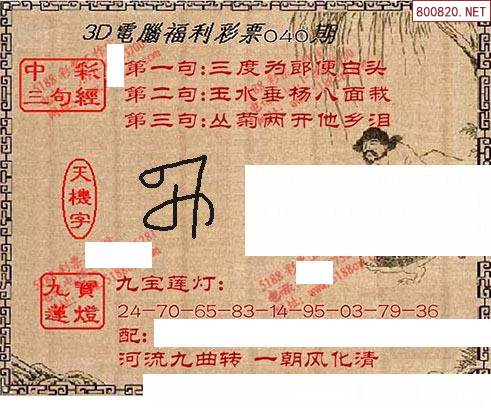 800820.NET
3D電腦福利彩票040期
中彩
三句經
第一句:三度为郎便白头
第二句:玉水垂杨八面栽
第三句:丛菊两开他乡泪
天機字
九寶
蓮燈
九宝莲灯:
24-70-65-83-14-95-03-79-36
配:
河流九曲转 一朝风化清